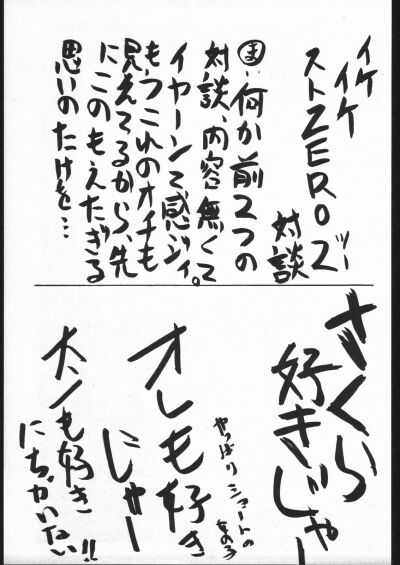 イケイケ
ストZERO2
ツー
対談
ま…何か前2つの
対談、内容無くて
イヤーンて感ジィ。
もうこれのオチも
見えてるから、先
にこのもえたぎる
思いのたけを…
さくら
好きじゃー
やっぱりショートの
女の子
オレも好き
にゃー
大ノも好き
にちがいない!!